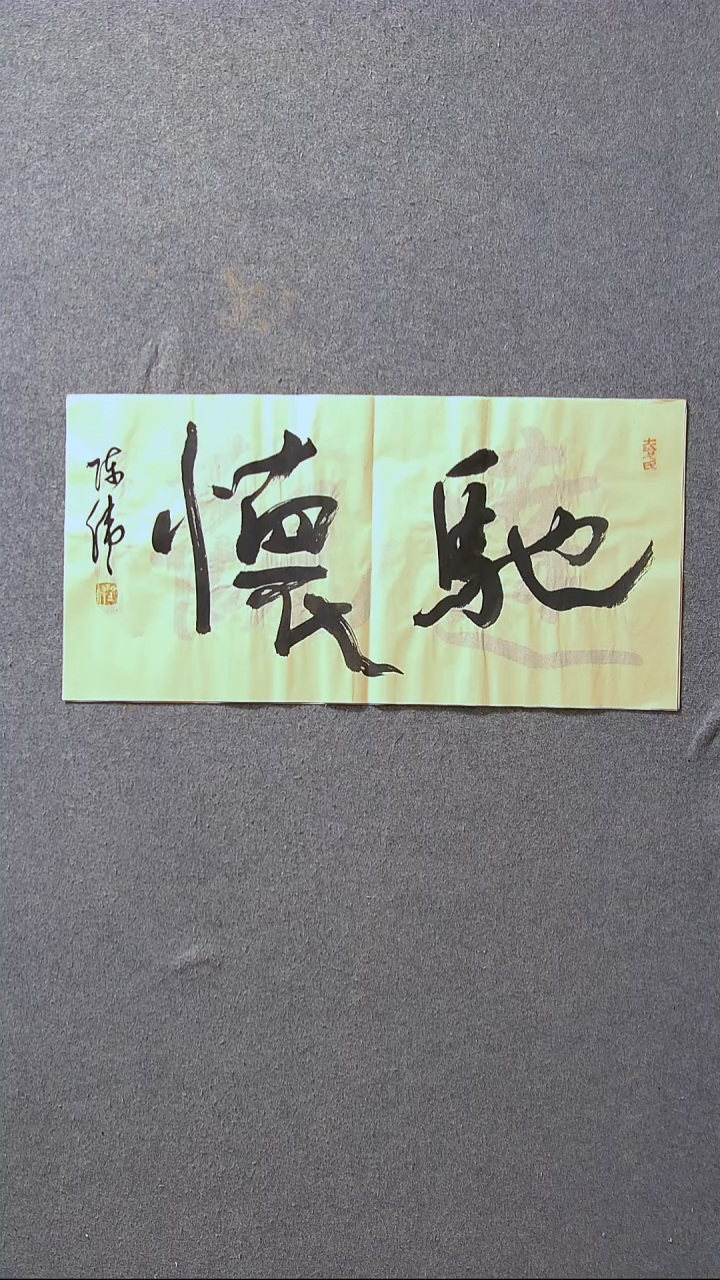 馳懷
陈伟